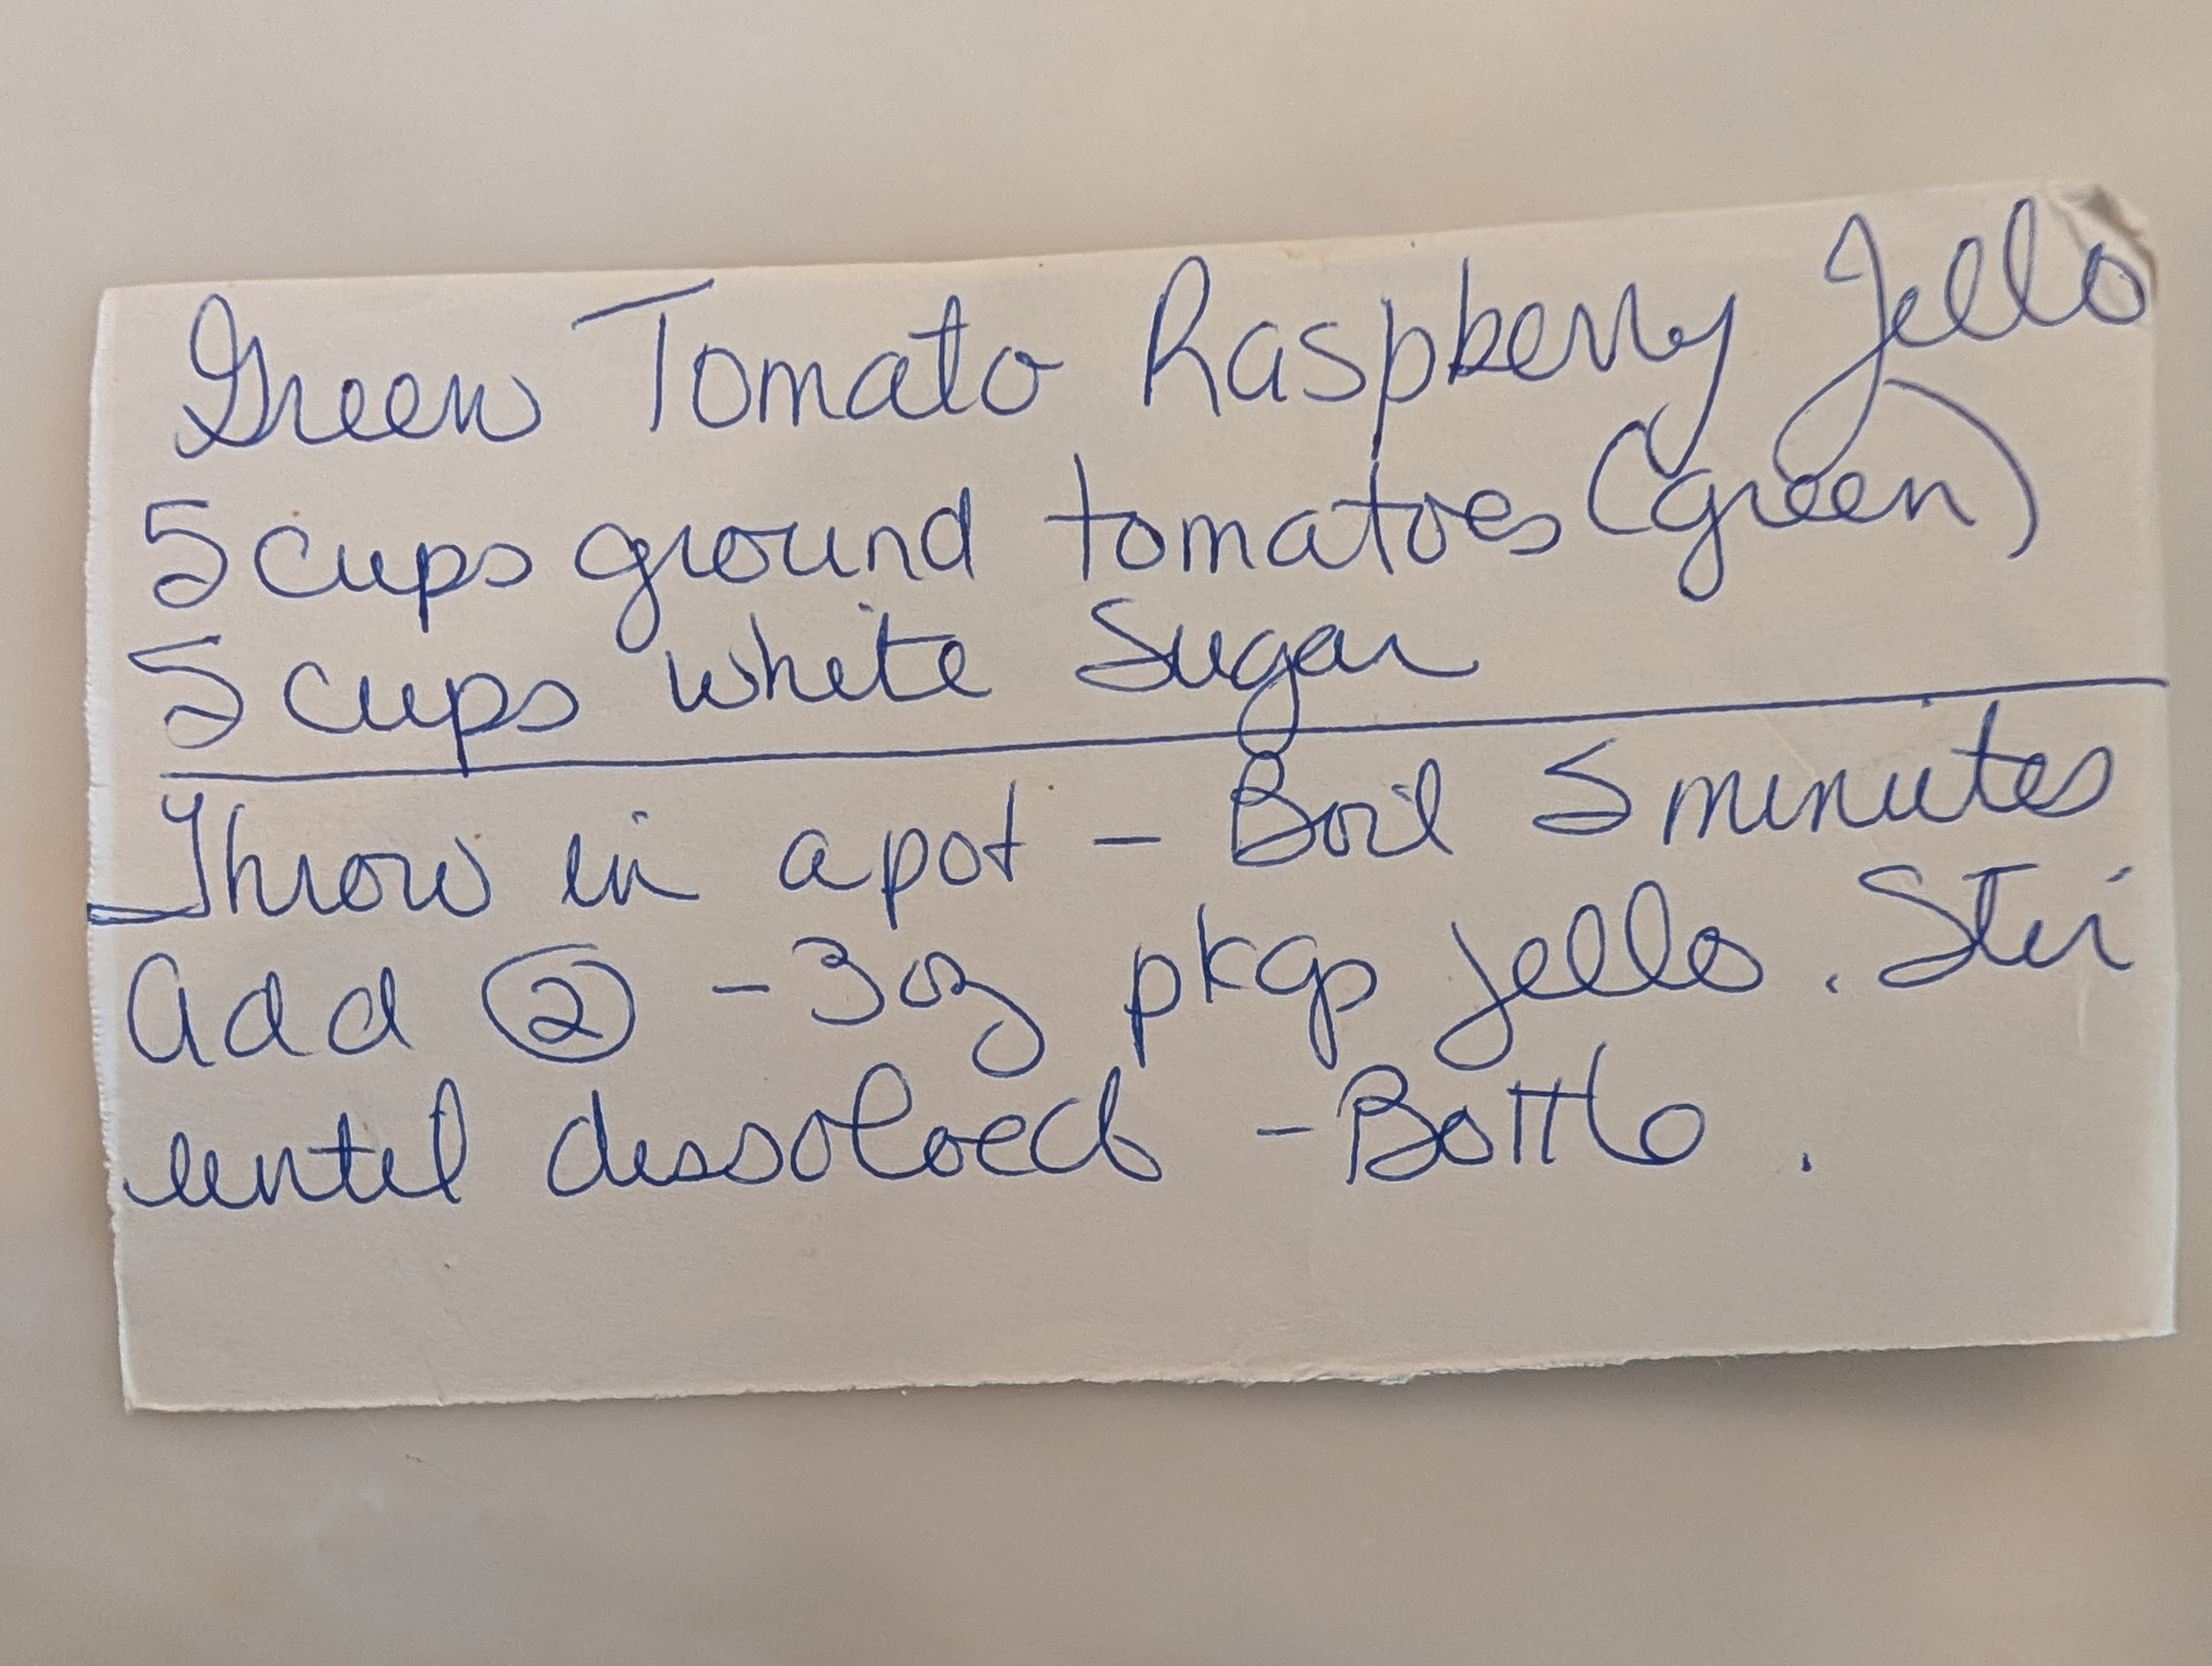 Green Tomato Raspberry Jello
5 cups ground tomatoes (green)
5 cups white Sugar
Throw in a pot - Boil 5 minutes
Add ② - 3 oz pkgs jello. Stir
until dissolved - Bottle.